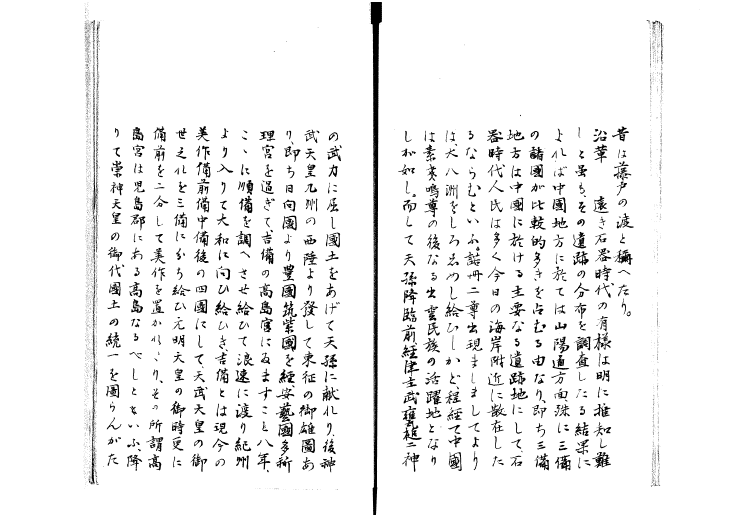 昔は藤戸の渡と稱へたり。
沿革　遠き石器時代の有様は明に推知し難
しと雖も、その遺跡の分布を調査したる結果に
よれば中國地方に於ては山陽道方面殊に三備
の諸國が比較的多きを占むる由なり、即ち三備
地方は中國に於ける主要なる遺跡地にして、石
器時代人民は多く今日の海岸附近に散在した
るならむといふ。諾冊二尊出現ましましてより
は大八洲をしろしめし給ひしかど、程經て中國
は素戔嗚尊の後なる出雲民族の活躍地となり
しが如し。而して天孫降臨前經津主武甕槌二神
の武力に屈し國土をあげて天孫に献れり、後神
武天皇九州の西陸より發して東征の御雄圖あ
り、即ち日向國より豊國筑紫國を經安藝國多祁
理宮を過ぎて、吉備の高島宮に坐ますこと八年
こゝに順備を調へさせ給ひて浪速に渡り紀州
より入りて大和に向ひ給ひき吉備とは現今の
美作備前備中備後の四國にして、天武天皇の御
世之れを三備に分ち給ひ元明天皇の御時更に
備前を二分して美作を置かれたり、その所謂高
島宮は児島郡にある高島なるべしといふ、降
りて崇神天皇の御代國土の統一を圖らんがた